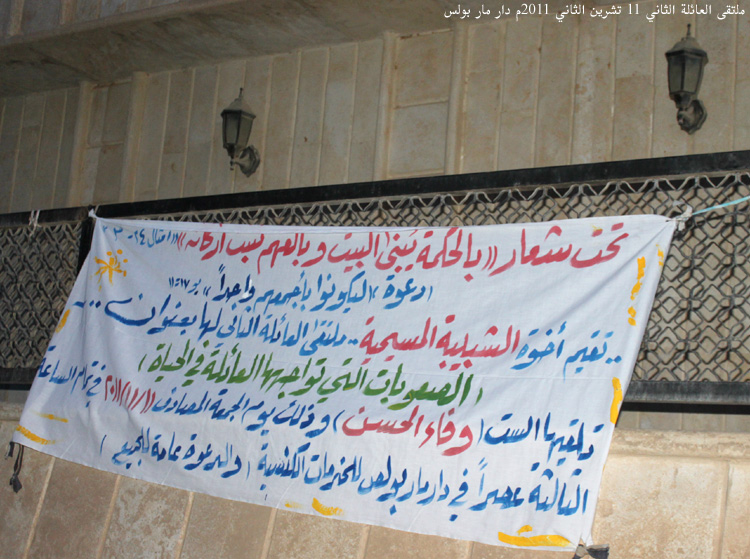 ملتقى العائلة الثاني 11 تشرين الثاني 2011م دار مار بولس
تحت شعار ((بالحكمة يُبنى البيت وبالفهم يثبت أركانه)) (امثال ٢٤-٣
دعوة ((ليكونوا بأجمعهم واحداً)) يو ١٧-١١
.. تقيم أخوة الشبيبة المسيحية .. ملتقى العائلة الثاني لها بعنوان ...
( الصعوبات التي تواجهها العائلة في الحياة )
تلقيها الست ( وفاء الحسن ) وذلك يوم الجمعة المصادف ١١/١١/٢٠١١ في تمام الساعة
الثالثة عصراً في دار مار بولس للخدمات الكنسية ( والدعوة عامة للجميع )